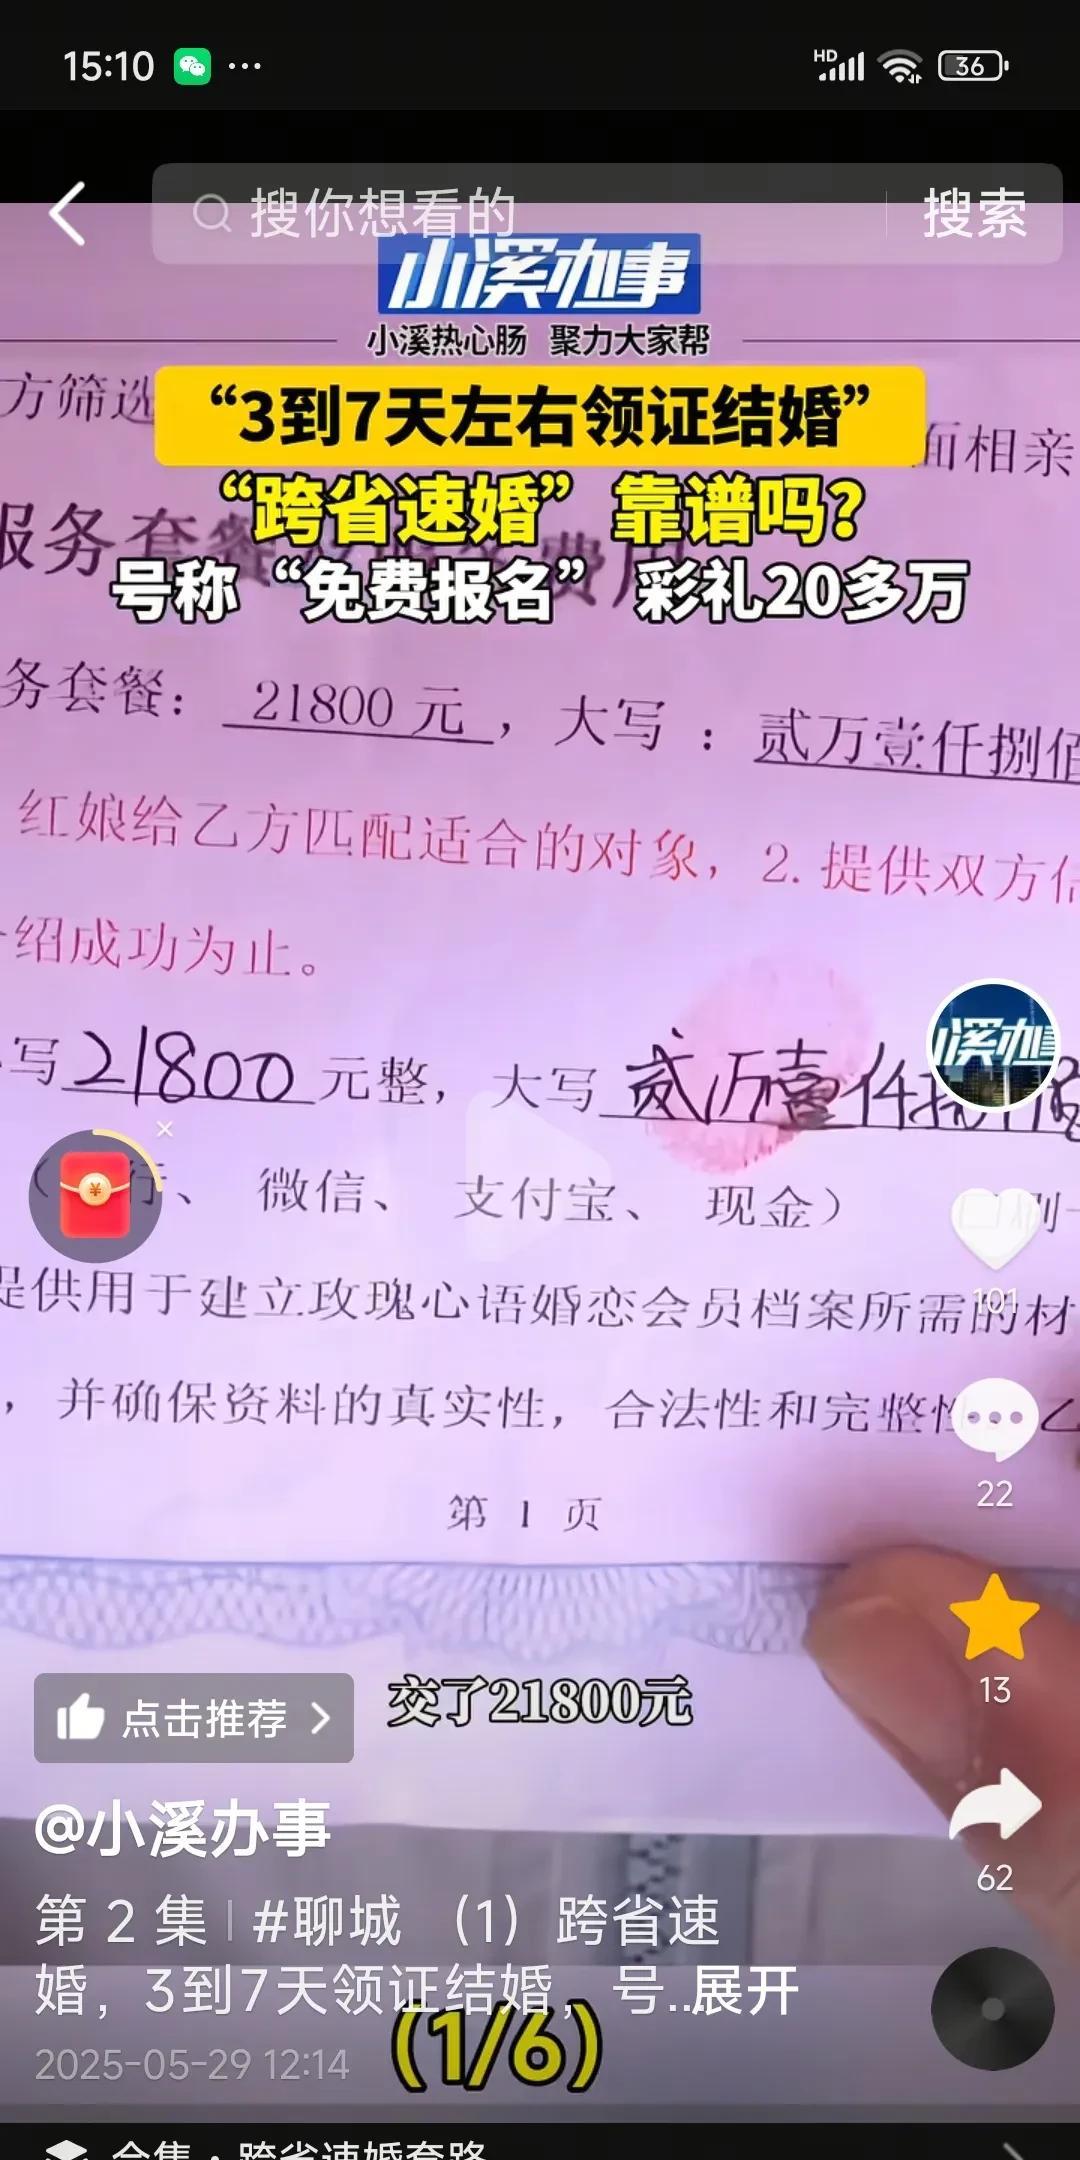 15:10
HD
36
搜你想看的
搜索
小溪办事
小溪热心肠 聚力大家帮
方筛选
面相亲
“3到7天左右领证结婚”
“跨省速婚”靠谱吗?
服务套餐
费
号称“免费报名” 彩礼20多万
务套餐: 21800 元 , 大写 : 贰万壹仟捌佰
红娘给乙方匹配适合的对象, 2. 提供双方信
介绍成功为止。
小溪办事
写 21800 元整, 大写 贰万壹仟捌佰
行、 微信、 支付宝、 现金)
101
提供用于建立玫瑰心语婚恋会员档案所需的材
, 并确保资料的真实性, 合法性和完整性 乙
22
第 1 页
13
点击推荐
交了21800元
@小溪办事
62
第 2 集 | #聊城 (1) 跨省速
婚, 3到7天领证结婚, 号...展开
(1/6)
2025-05-29 12:14
合集·跨省速婚套路